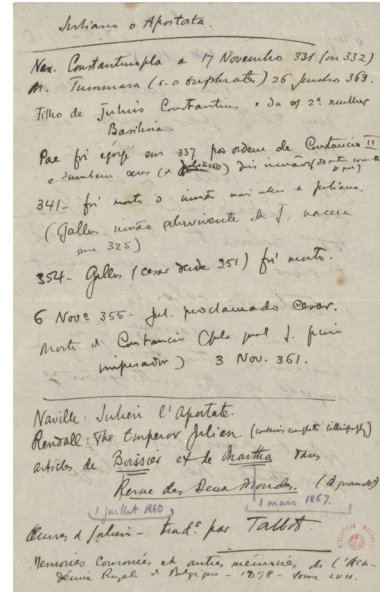 Juliano o Apostata.
Nax. Constantinopla a 17 Novembro 331 (ou 332)
M. Tummara (s. o Euphrates) 26 Junho 363.
Filho de Julius Constantius e da sª 2ª mulher
Basilina.
Pae foi em 337 por ordem de Constancio II
e tambem seus irmãos
341 - foi morto o irmão mais de Juliano.
(Gallos irmão sobrevivente de J. nascera
em 325)
354 - Gallos (cesar desde 351) foi morto.
6 Novº 355 - Jul. proclamado cesar.
Morte d Constancio (pela qual J. fica
imperador) 3 Nov. 361.
Naville: Julien l'Apostate.
Rendall: The Emperor Julian (contains complete bibliography)
articles de Boissier et de Martha dans
Revue des Deux Mondes. (de quando?)
1 juillet 1880 1 mars 1867.
Œuvres d Julien - tradº par Talbot.
Memoires Couronnés et autres mémoires de l'Aca-
démie Royale d Belgique - 1898 - tome LVII.